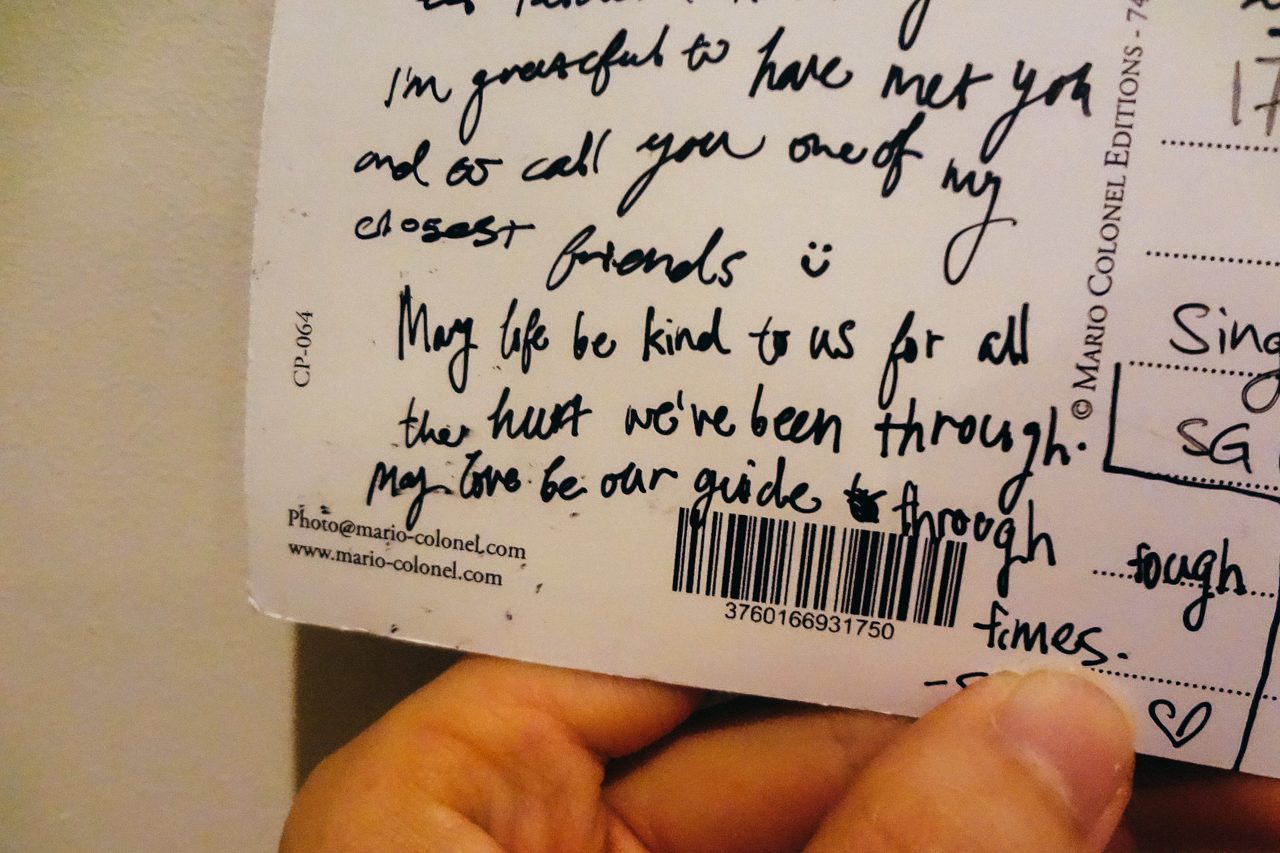 I'm grateful to have met you
and to call you one of my
closest friends
May life be kind to us for all
the hurt we've been through.
May love be our guide through
tough
times.
Photo@mario-colonel.com
www.mario-colonel.com
3760166931750
CP-064
© MARIO COLONEL EDITIONS - 74
17
Sing
SG